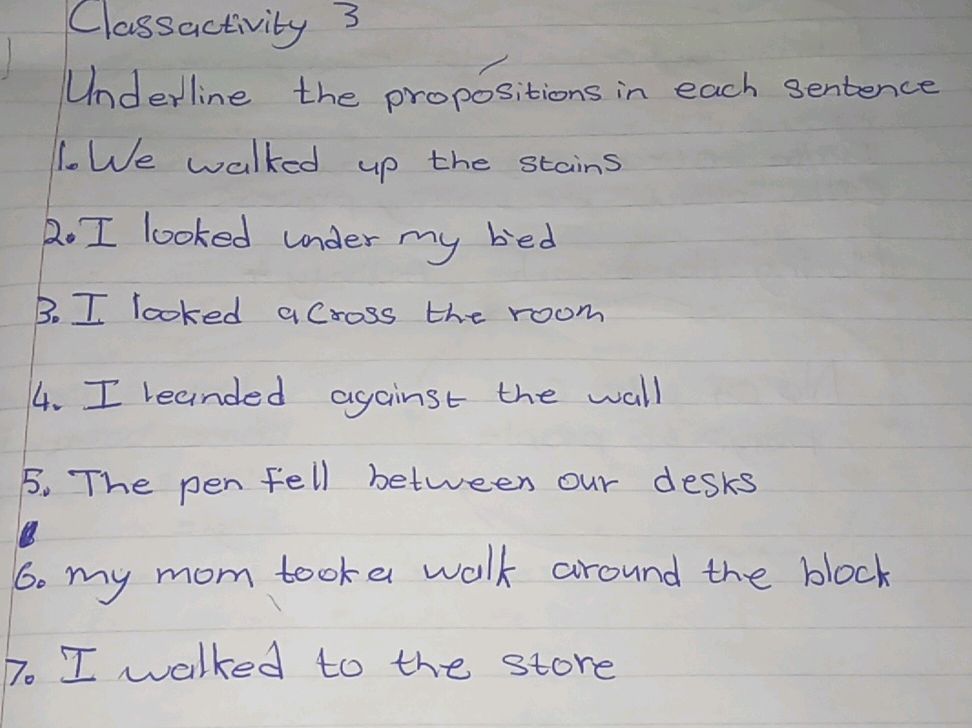 Classactivity 3
Underline the propositions in each sentence
1. We walked up the stains
2. I looked under my bed
3. I looked across the room
4. I leanded against the wall
5. The pen fell between our desks
6. my mom took a walk around the block
7. I walked to the store